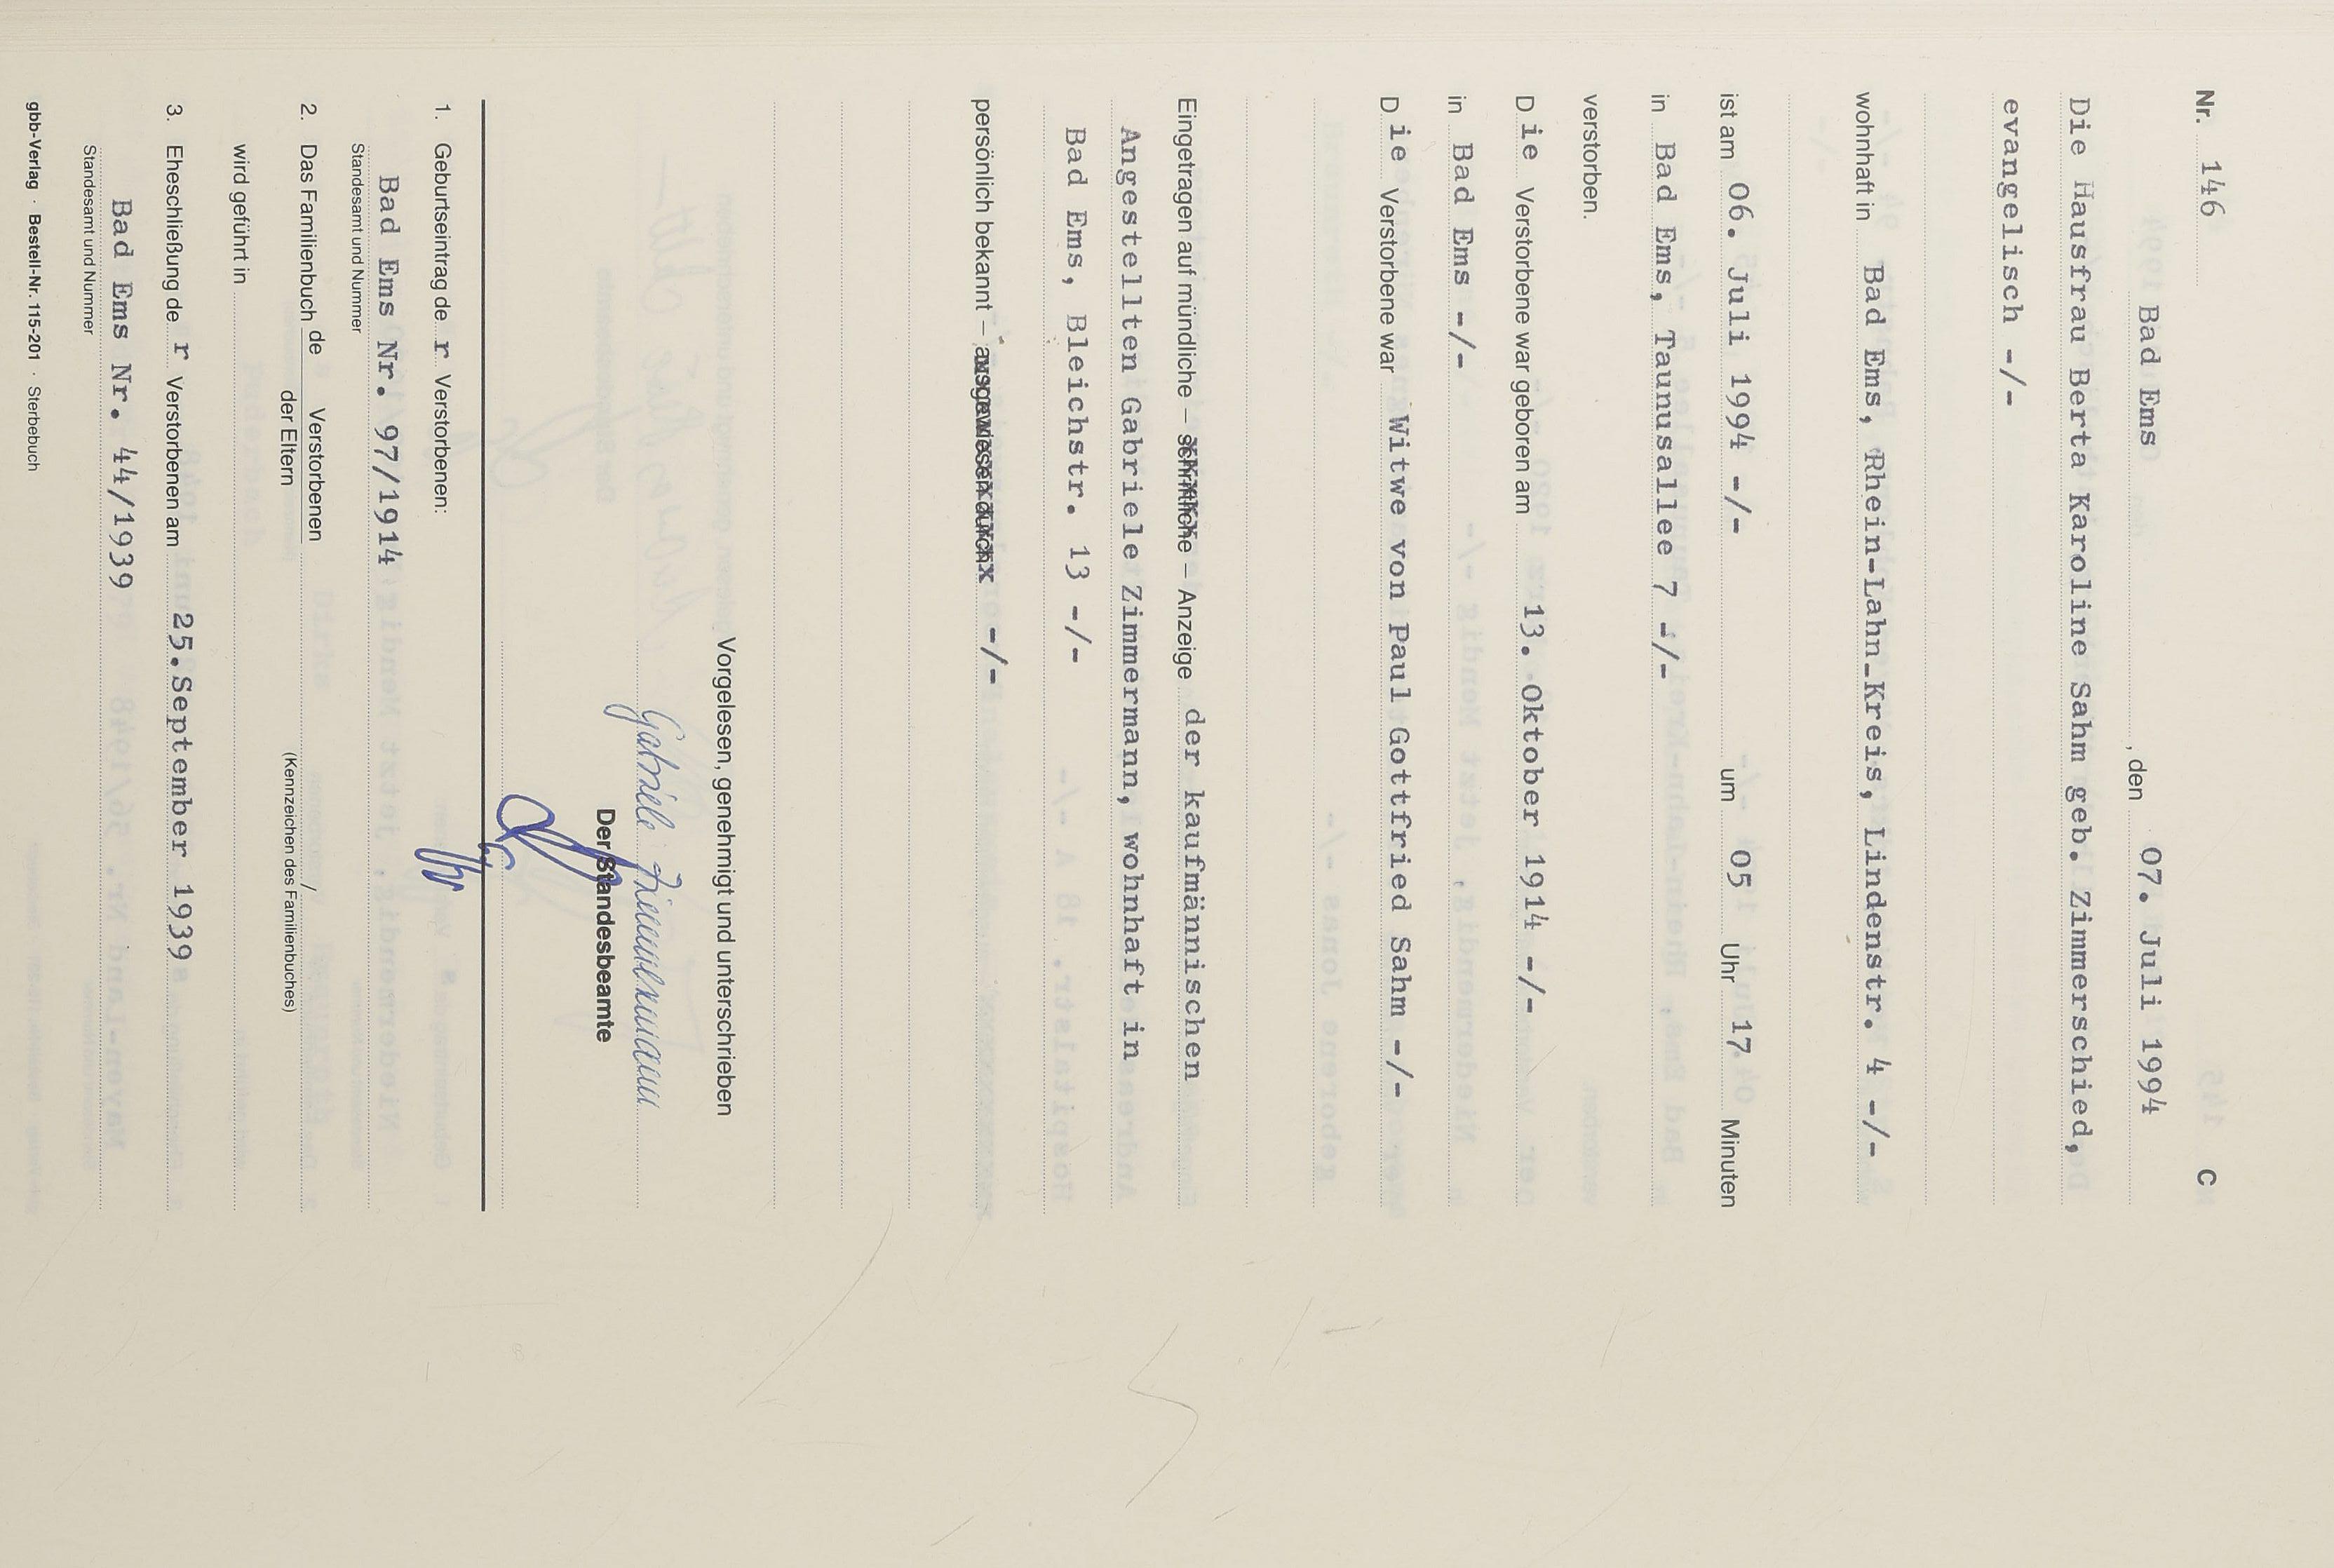 Nr. 146 C
Bad Ems, den 07. Juli 1994
Die Hausfrau Berta Karoline Sahm geb. Zimmerschied,
evangelisch -/-
wohnhaft in Bad Ems, Rhein-Lahn-Kreis, Lindenstr. 4 -/-
ist am 06. Juli 1994 -/- um 05 Uhr 17 Minuten
in Bad Ems, Taunusallee 7 -/-
verstorben.
Die Verstorbene war geboren am 13. Oktober 1914 -/-
in Bad Ems -/-
Die Verstorbene war Witwe von Paul Gottfried Sahm -/-
Eingetragen auf mündliche – schriftliche – Anzeige der kaufmännischen
Angestellten Gabriele Zimmermann, wohnhaft in
Bad Ems, Bleichstr. 13 -/-
persönlich bekannt – ausgewiesen durch -/-
Vorgelesen, genehmigt und unterschrieben
Gabriele Zimmermann
Der Standesbeamte
1. Geburtseintrag der Verstorbenen:
Bad Ems Nr. 97/1914
Standesamt und Nummer
2. Das Familienbuch de Verstorbenen
der Eltern
/
(Kennzeichen des Familienbuches)
wird geführt in
3. Eheschließung der Verstorbenen am 25.September 1939
Bad Ems Nr. 44/1939
Standesamt und Nummer
gbb-Verlag · Bestell-Nr. 115-201 · Sterbebuch